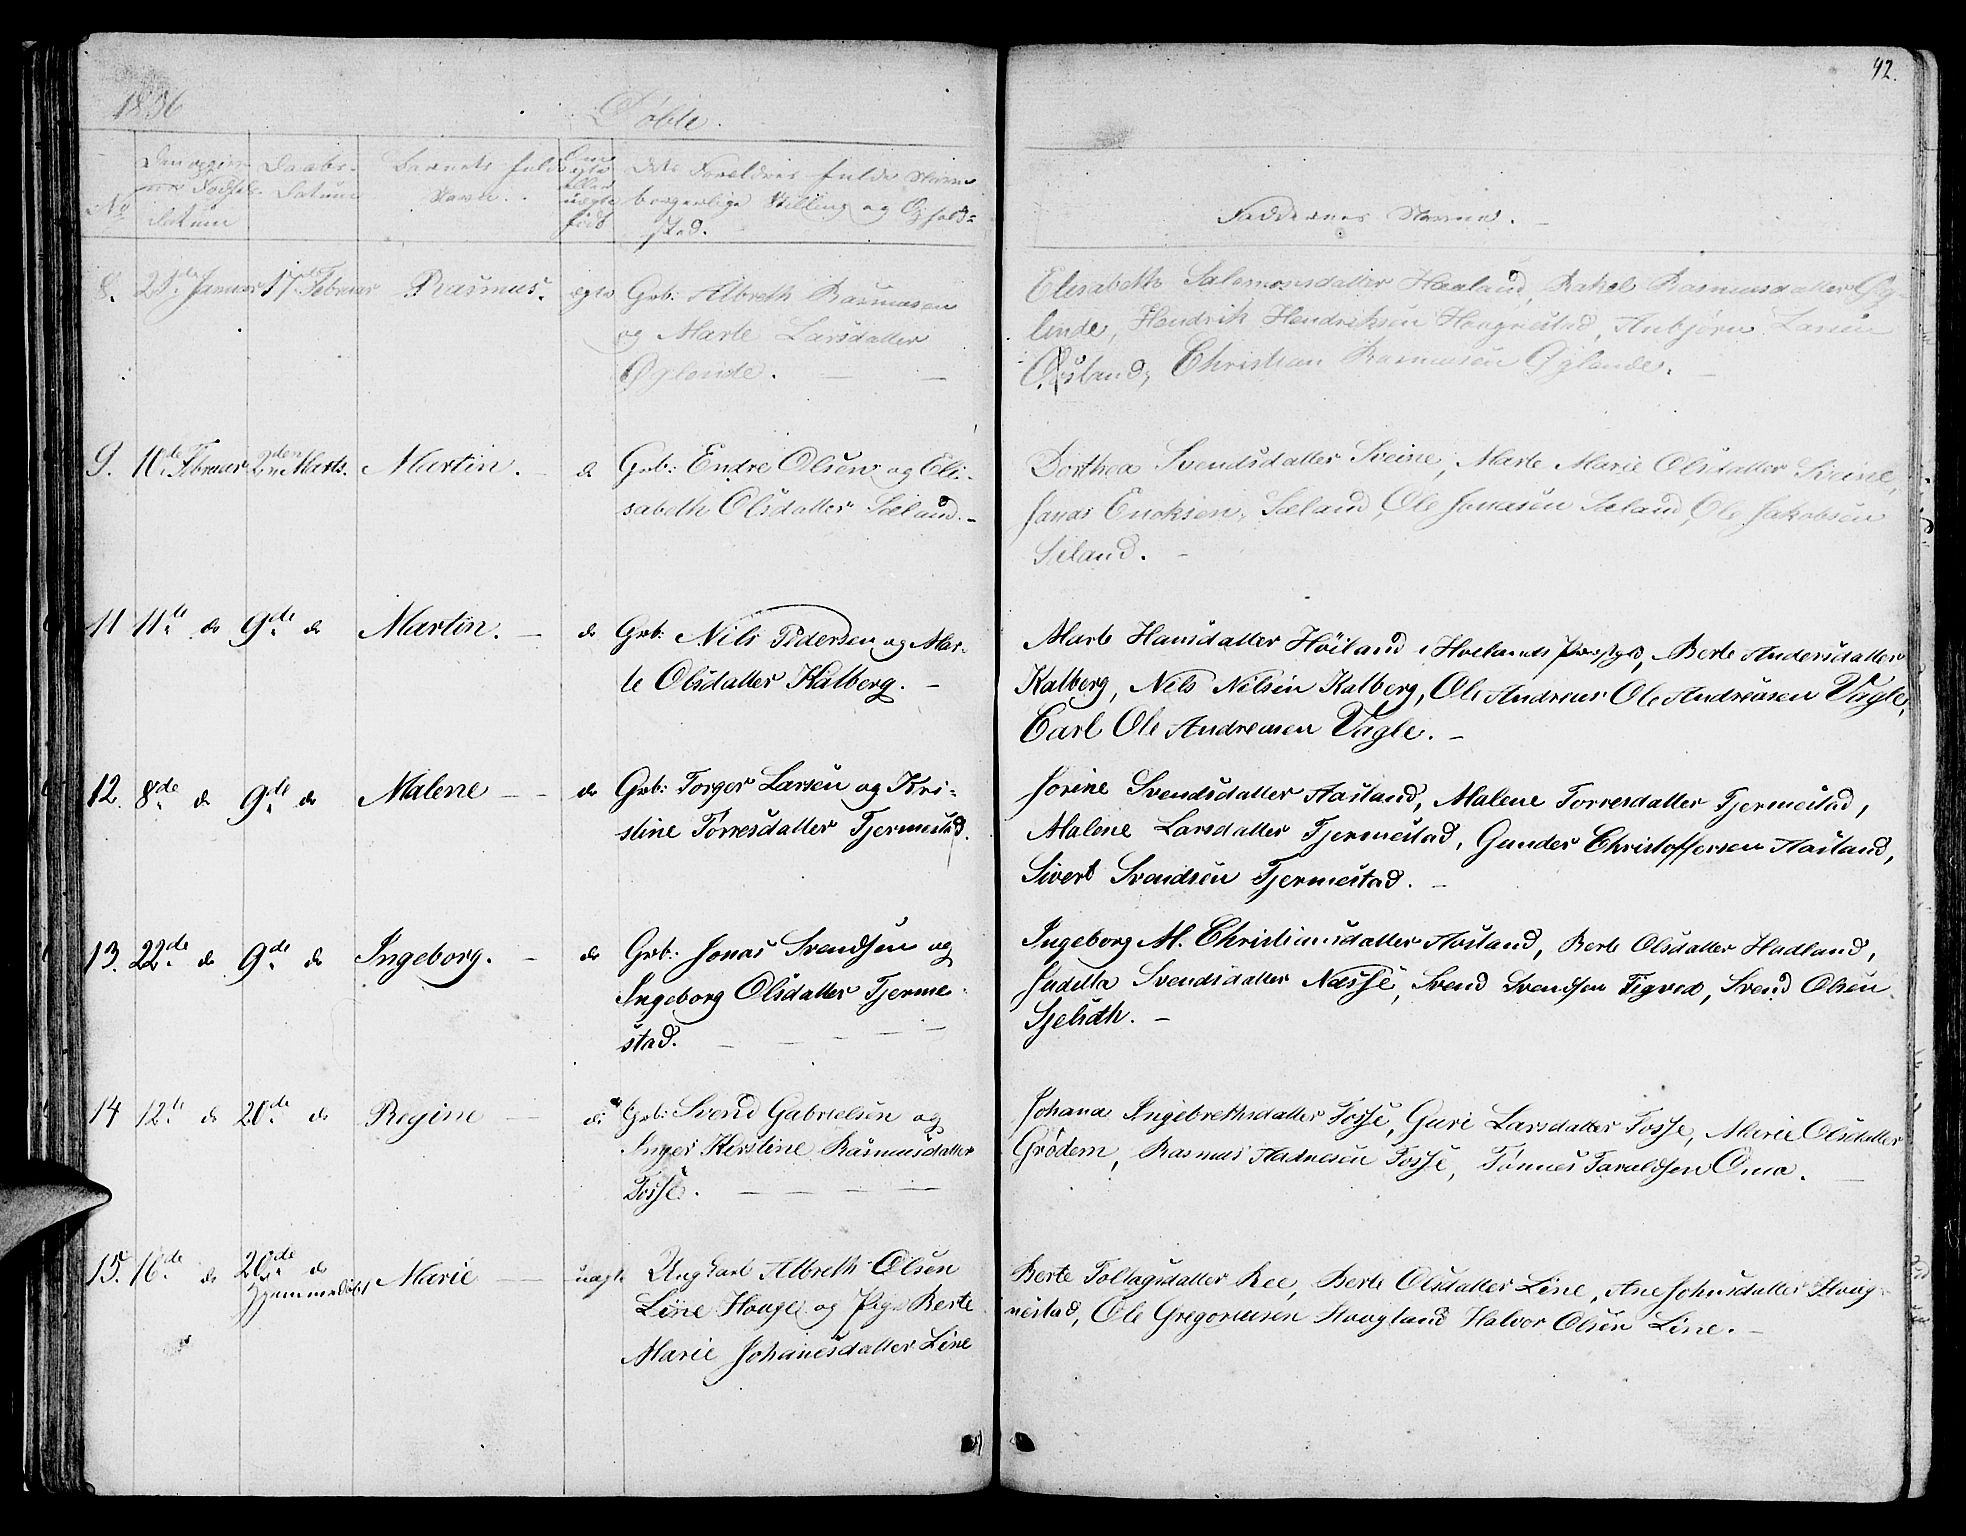 42.
1856
Døbte.
No
Datum
Daabs-
Datum
Barnets fulde
Navn.
Om
ægte
eller
uægte
født
Dets Forældres fulde Navne
borgerlige Stilling og Ophold=
sted.
Faddernes Navne. -
8. 21de Januar 17de Februar Rasmus. ægte Grb: Albreth Rasmusen
og Marte Larsdatter
Øglende. - -
Elisabeth Salomonsdatter Haaland, Rakel Rasmusdatter Øg-
lende, Hendrik Hendriksen Haagnestad, Anbjørn Larsen
Østland, Christian Rasmusen Øglende. -
9. 10de Februar 2den Marts. Martin. do Grb: Endre Olsen og Eli-
sabeth Olsdatter Sæland. -
Dorthea Svendsdatter Sveine, Marte Marie Olsdatter Sveine,
Jonas Enoksen, Sæland, Ole Jonasen Sæland, Ole Jakobsen
Sæland. -
11 11te do 9de do Martin. - do Grb: Nils Pedersen og Mar-
te Olsdatter Kalberg. -
Marte Hansdatter Høiland i Høilands Præstgld, Berte Andersdatter
Kalberg, Nels Nilsen Kalberg, Ole Andreas Ole Andreasen Vagle,
Carl Ole Andreasen Vagle. -
12. 8de do 9de do Malene - - do Grb: Torger Larsen og Kri=
stine Torresdatter Tjermestad.
Jorine Svendsdatter Aasland, Malene Torresdatter Tjermestad,
Malene Larsdatter Tjermestad, Gunder Christoffersen Aasland,
Sivert Svendsen Tjermestad. -
13. 22de do 9de do Ingeborg. - do Grb: Jonas Svendsen og
Ingeborg Olsdatter Tjerme-
stad. - - - - -
Ingeborg M. Christiansdatter Aasland, Berte Olsdatter Hadland,
Judetta Svendsdatter Næsse, Svend Svendsen Tegvea, Svend Olsen
Sjelsdth. -
14 12te do 20de do Regine - do Grb: Svend Gabrielsen og
Inger Kerstine Rasmusdatter
Fosse. - - - -
Johana Ingebrethsdatter Fosse, Guri Larsdatter Fosse, Marie Olsdatter
Grødem, Rasmus Aadnesen Fosse, Tønnes Taraldsen Oma. -
15. 16de do 20de do Marie - uægte Ungkarl Albreth Olsen
Hjemmedøbt
Line Hauge og Pige Berte
Marie Johanesdatter Line
Berte Tollagsdatter Ree, Berte Olsdatter Line, Ane Johnsdatter Haug-
nestad, Ole Gregoriusen Haugland Halvor Olsen Line. -